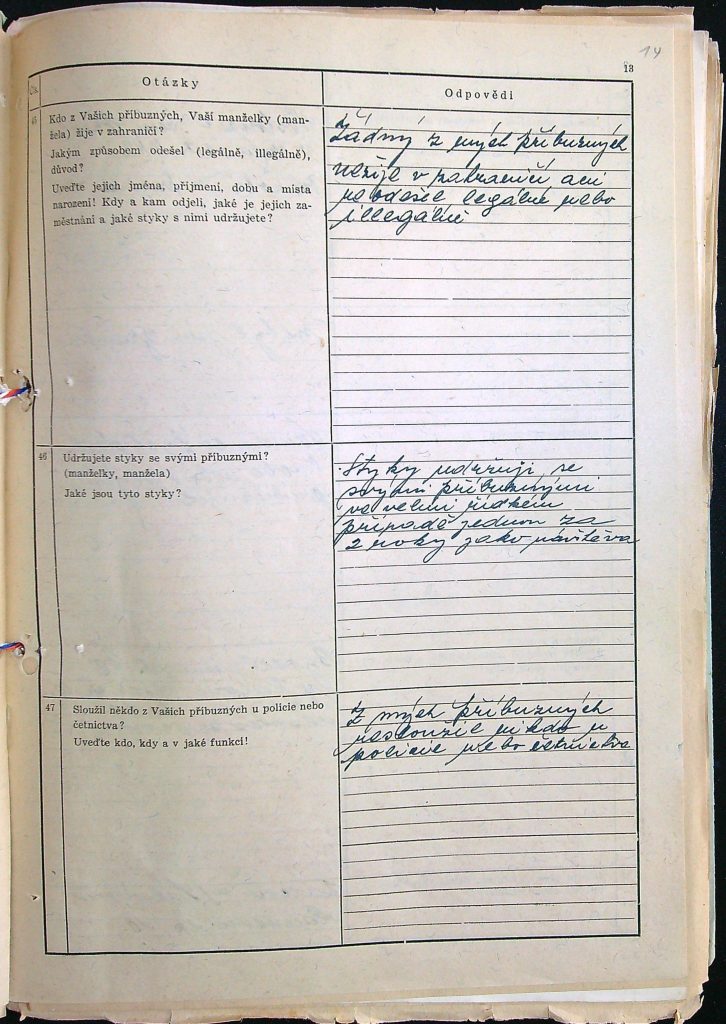 14
13
Čís.
Otázky
Odpovědi
45
Kdo z Vašich příbuzných, Vaší manželky (man-
žela) žije v zahraničí?
Jakým způsobem odešel (legálně, illegálně),
důvod?
Uveďte jejich jména, příjmení, dobu a místa
narození! Kdy a kam odjeli, jaké je jejich za-
městnání a jaké styky s nimi udržujete?
Žádný z mých příbuzných
nežije v zahraničí ani
neodešel legálně nebo
illegálně
46
Udržujete styky se svými příbuznými?
(manželky, manžela)
Jaké jsou tyto styky?
Styky udržuji se
svými příbuznými
ve velmi řídkém
případě jednou za
2 roky jako návštěva
47
Sloužil někdo z Vašich příbuzných u policie nebo
četnictva?
Uveďte kdo, kdy a v jaké funkci!
Z mých příbuzných
nesloužil nikdo u
policie nebo četnictva